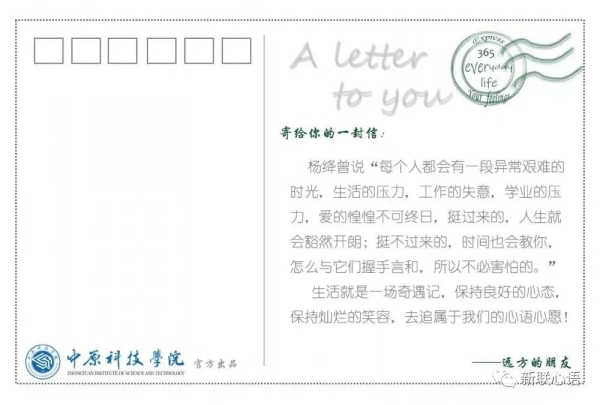 A letter
to you
Express
365
everyday
life
Your feelings
寄给你的一封信：
杨绛曾说“每个人都会有一段异常艰难的
时光，生活的压力，工作的失意，学业的压
力，爱的惶惶不可终日，挺过来的，人生就
会豁然开朗；挺不过来的，时间也会教你，
怎么与它们握手言和，所以不必害怕的。”
生活就是一场奇遇记，保持良好的心态，
保持灿烂的笑容，去追属于我们的心语心愿！
——远方的朋友
中原科技學院 官方出品
ZHONGYUAN INSTITUTE OF SCIENCE AND TECHNOLOGY
新联心语